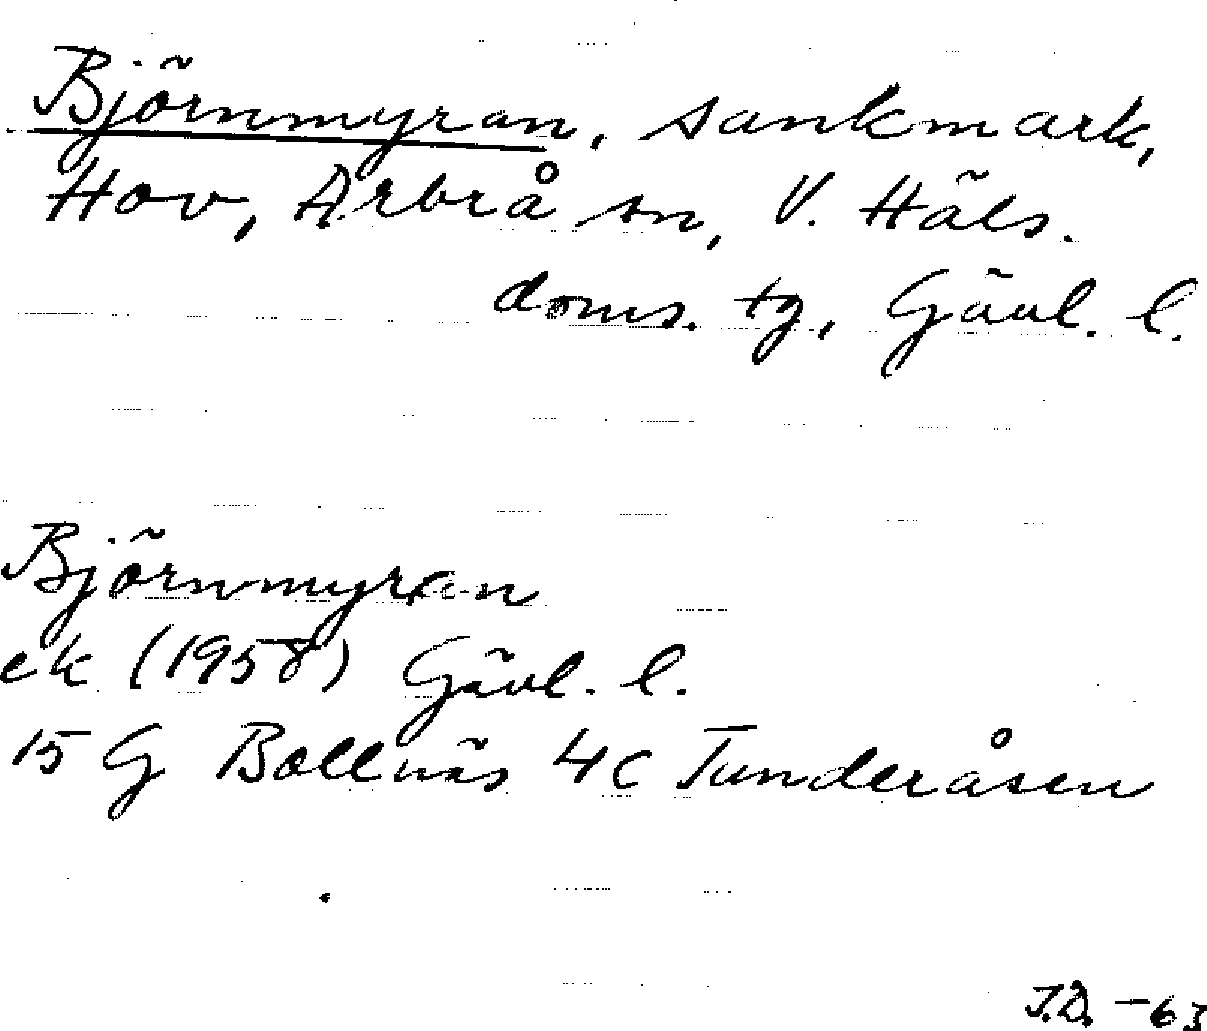 Björnmyran, sankmark,
Hov, Arbrå sn, V. Häls.
doms. tg, Gävl. l.
Björnmyran
ek (1958) Gävl. l.
15 G Bollnäs 4c Tunderåsen
J.D. -63